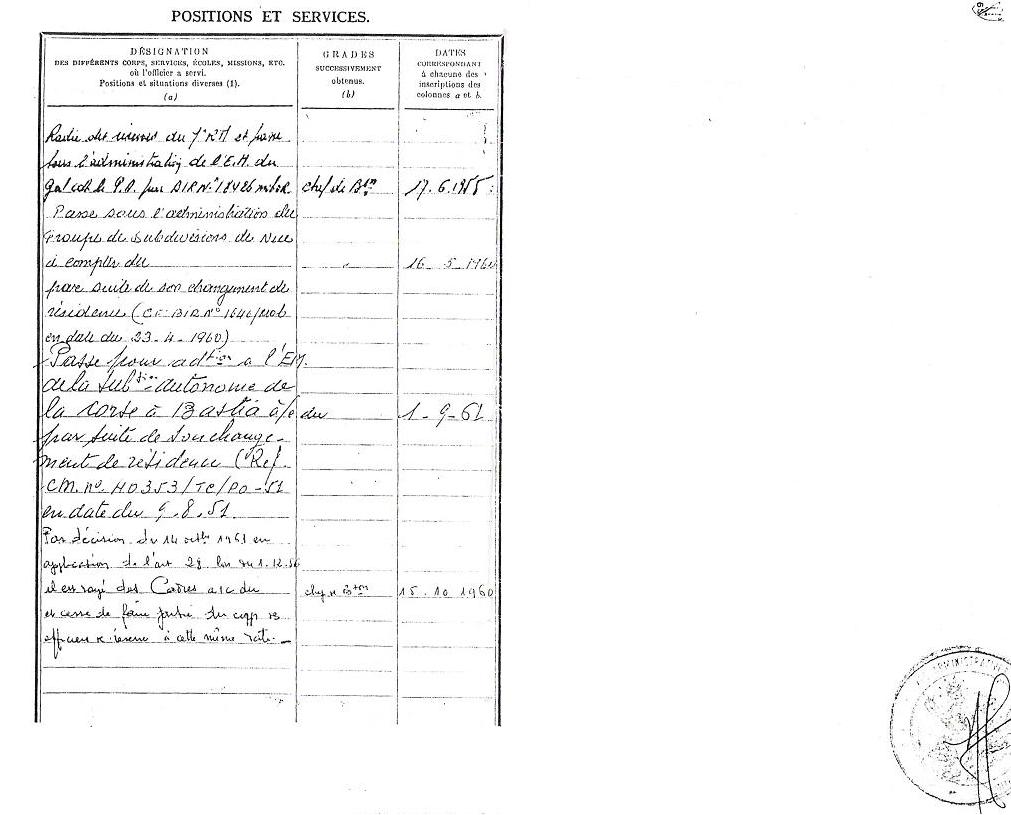 POSITIONS ET SERVICES.
DÉSIGNATION
DES DIFFÉRENTS CORPS, SERVICES, ÉCOLES, MISSIONS, ETC.
où l'officier a servi.
Positions et situations diverses (1).
(a)
GRADES
SUCCESSIVEMENT
obtenus.
(b)
DATES
CORRESPONDANT
à chacune des
inscriptions des
colonnes a et b.
du et passe
sous l'administration de l'E.M. du
chef de Btn 17.6.1955
Passe sous l'administration du
Groupe de Subdivisions de Nice
à compter du " 16-5-1960
par suite de son changement de
résidence (CF: BIR N° 1646/mob
en date du 23-4-1960)
Passe pour adtion à l'EM.
de la subion autonome de
la Corse à Bastia à/c du 1-9-61
par suite de son change-
ment de résidence (Réf.
CM. n° 40353/TC/PO-51
en date du 9.8.51
Par décision du 14 octbre 1961 en
application de l'art 28 loi du 1.12.56
il est rayé des Cadres a/c du 15.10 1960
et cesse de faire partie du corps
à cette même date.
ADMINISTRATIVE